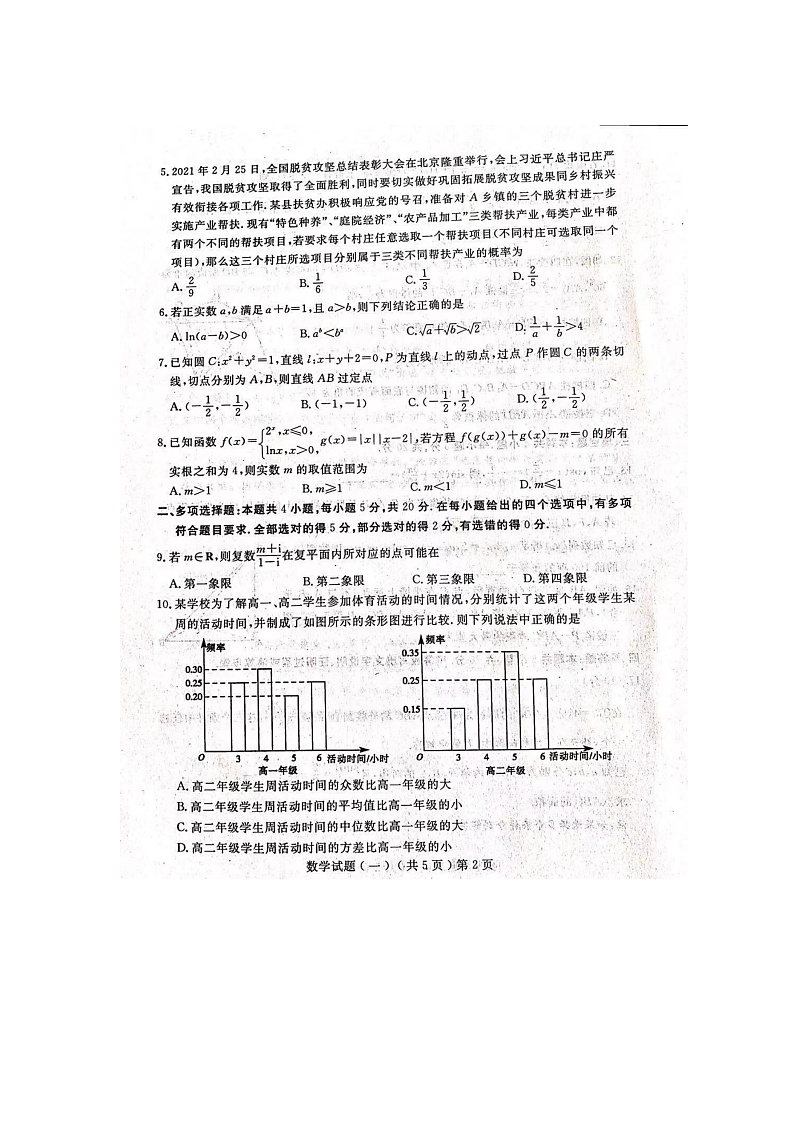 5.2021年2月25日,全国脱贫攻坚总结表彰大会在北京隆重举行,会上习近平总书记庄严
宣告,我国脱贫攻坚取得了全面胜利,同时要切实做好巩固拓展脱贫攻坚成果同乡村振兴
有效衔接各项工作.某县扶贫办积极响应党的号召,准备对A乡镇的三个脱贫村进一步
实施产业帮扶.现有“特色种养”、“庭院经济”、“农产品加工”三类帮扶产业,每类产业中都
有两个不同的帮扶项目,若要求每个村庄任意选取一个帮扶项目(不同村庄可选取同一个
项目),那么这三个村庄所选项目分别属于三类不同帮扶产业的概率为
A. 2/9 B. 1/6 C. 1/3 D. 2/5
6.若正实数a,b满足a+b=1,且a>b,则下列结论正确的是
A.ln(a-b)>0 B.aᵇ<bᵃ C.√a+√b>√2 D. 1/a+1/b>4
7.已知圆C:x²+y²=1,直线l:x+y+2=0,P为直线l上的动点,过点P作圆C的两条切
线,切点分别为A,B,则直线AB过定点
A.(-1/2,-1/2) B.(-1,-1) C.(-1/2,1/2) D.(1/2,-1/2)
8.已知函数f(x)={2ˣ,x≤0, lnx,x>0, g(x)=|x||x-2|,若方程f(g(x))+g(x)-m=0的所有
实根之和为4,则实数m的取值范围为
A.m>1 B.m≥1 C.m<1 D.m≤1
二、多项选择题:本题共4小题,每小题5分,共20分.在每小题给出的四个选项中,有多项
符合题目要求.全部选对的得5分,部分选对的得2分,有选错的得0分.
9.若m∈R,则复数(m+i)/(1-i)在复平面内所对应的点可能在
A.第一象限 B.第二象限 C.第三象限 D.第四象限
10.某学校为了解高一、高二学生参加体育活动的时间情况,分别统计了这两个年级学生某
周的活动时间,并制成了如图所示的条形图进行比较.则下列说法中正确的是
频率
0.30
0.25
0.20
O 3 4 5 6 活动时间/小时
高一年级
频率
0.35
0.25
0.15
O 3 4 5 6 活动时间/小时
高二年级
A.高二年级学生周活动时间的众数比高一年级的大
B.高二年级学生周活动时间的平均值比高一年级的小
C.高二年级学生周活动时间的中位数比高一年级的大
D.高二年级学生周活动时间的方差比高一年级的小
数学试题(一)(共5页)第2页